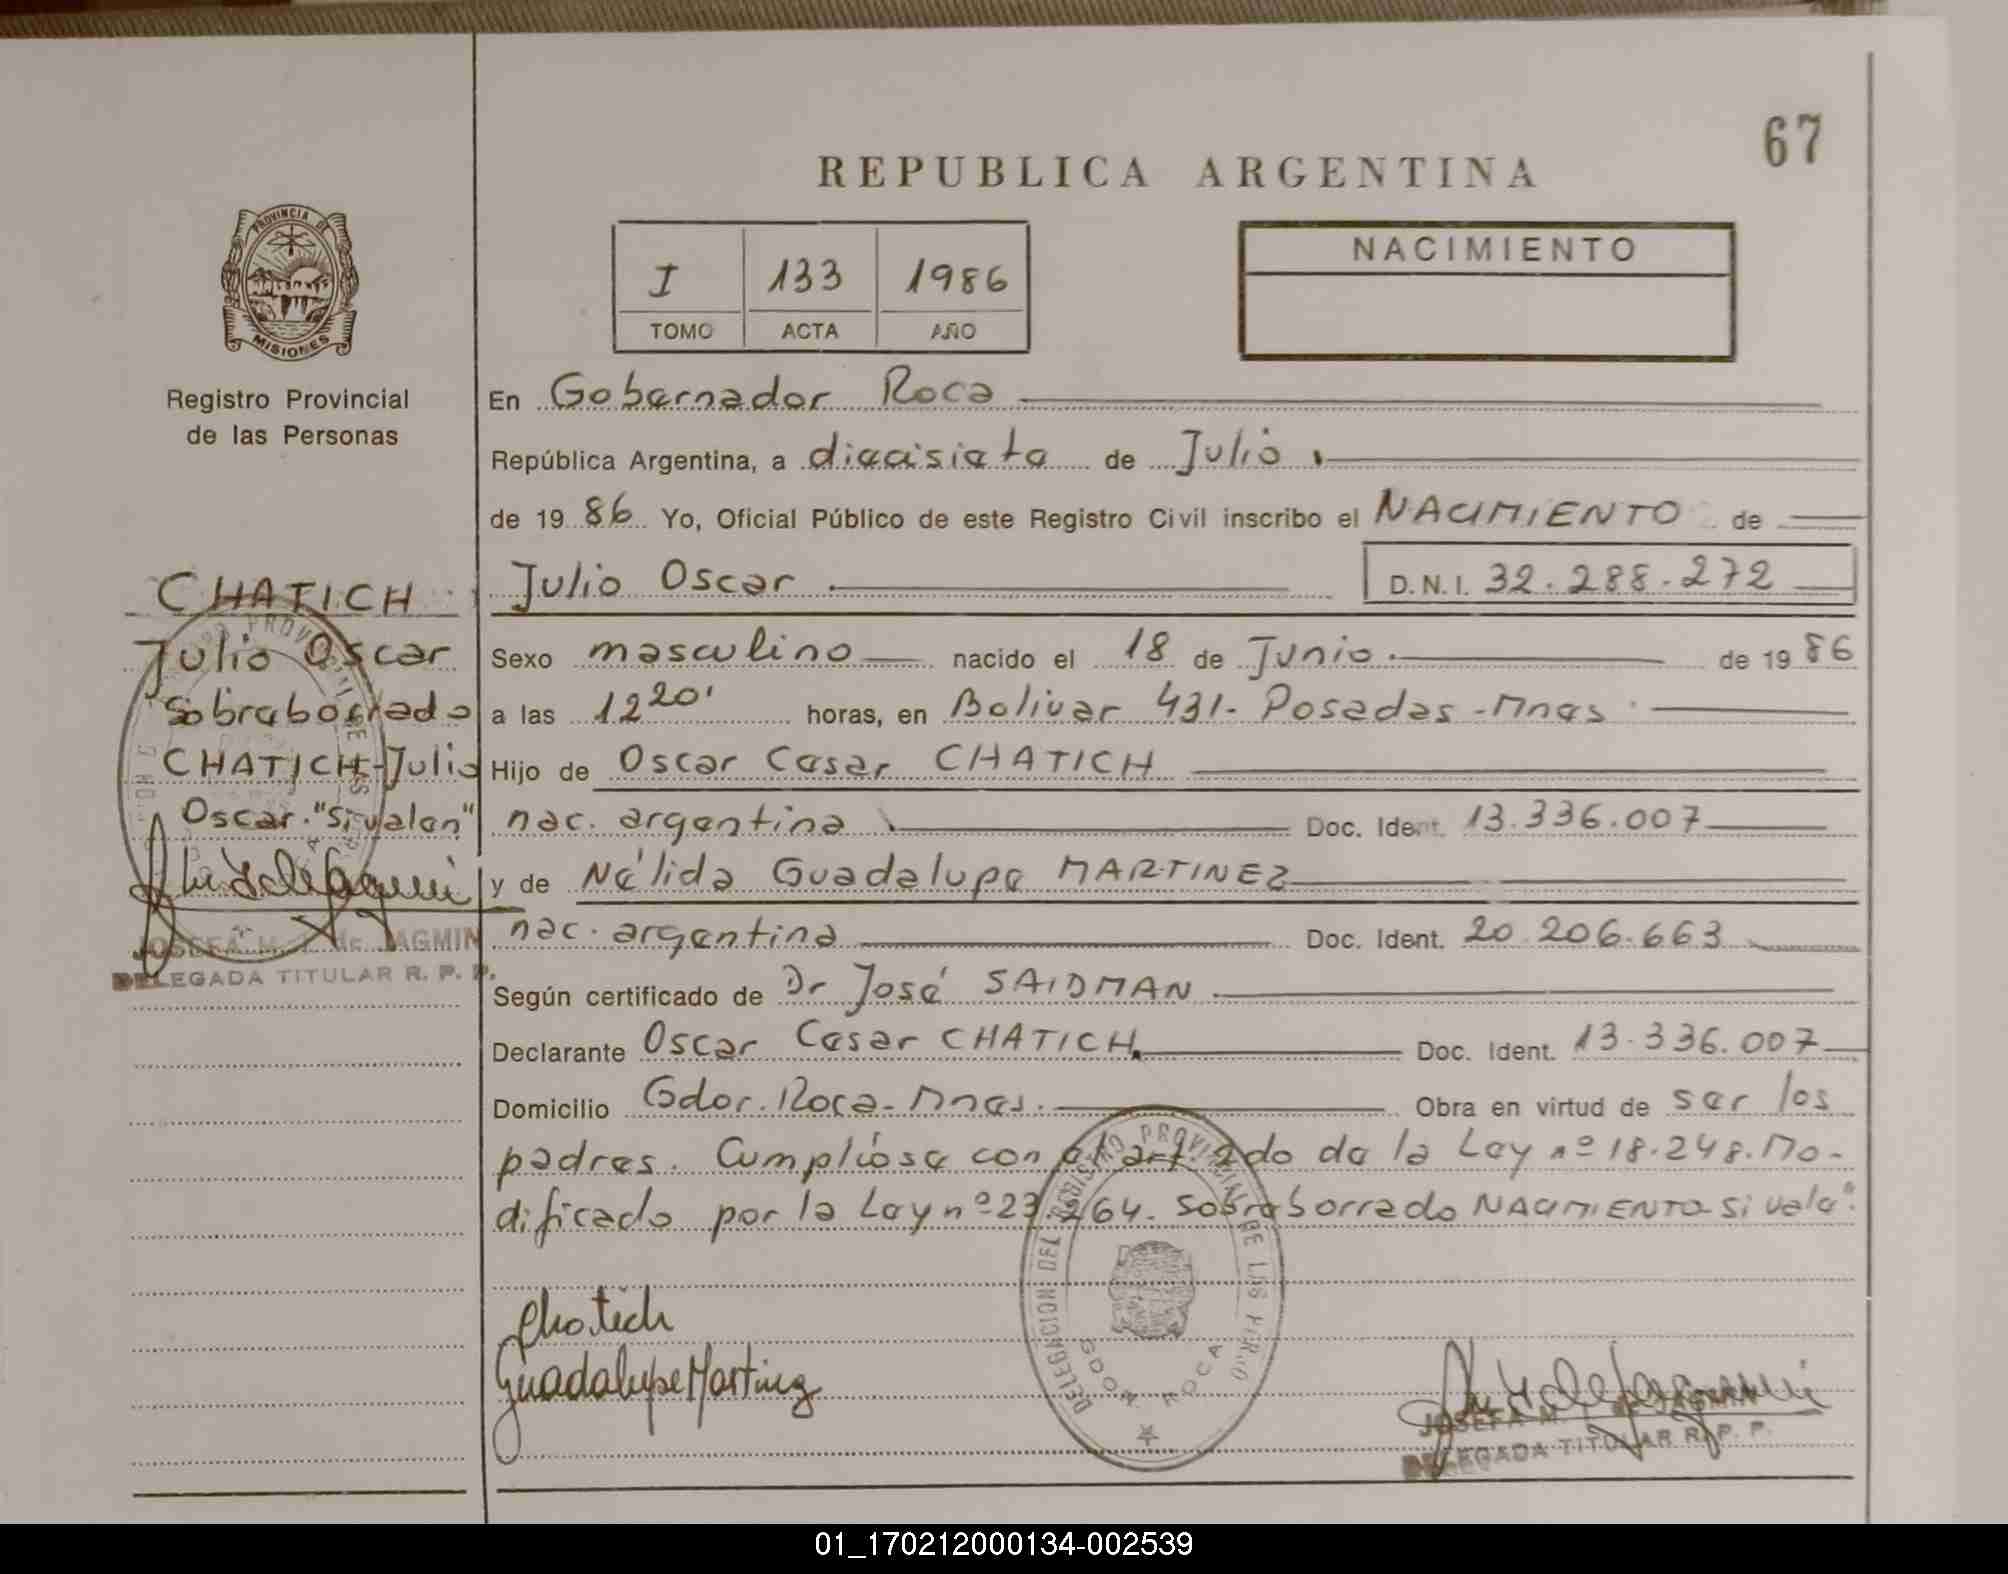 67
REPUBLICA ARGENTINA
PROVINCIA DE
MISIONES
Registro Provincial
de las Personas
I 133 1986
TOMO ACTA AÑO
NACIMIENTO
En Gobernador Roca
República Argentina, a diecisiete de Julio
de 19 86 Yo, Oficial Público de este Registro Civil inscribo el NACIMIENTO de
Julio Oscar D.N.I. 32.288.272
Sexo masculino nacido el 18 de Junio de 19 86
a las 12 20' horas, en Bolivar 431- Posadas-Mnes
Hijo de Oscar Cesar CHATICH
nac. argentina Doc. Ident. 13.336.007
y de Nélida Guadalupe MARTINEZ
nac. argentina Doc. Ident. 20 206.663
Según certificado de Dr José SAIDMAN
Declarante Oscar Cesar CHATICH Doc. Ident. 13.336.007
Domicilio Gdor. Roca-Mnes. Obra en virtud de ser los
padres. Cumpliose con el art 2do de la Ley nº 18.248. Mo-
dificado por la Ley nº 23.264. Sobreborrado NACIMIENTO Si vale".
CHATICH
Julio Oscar
"Sobreborrado
CHATICH-Julio
Oscar. "Si valen"
JOSEFA M. de JAGMIN
DELEGADA TITULAR R. P. P.
Chatich
Guadalupe Martinez
DELEGACION DEL REGISTRO PROVINCIAL DE LAS PERSO
GDOR. ROCA
JOSEFA M. de JAGMIN
DELEGADA TITULAR R. P. P.
01_170212000134-002539